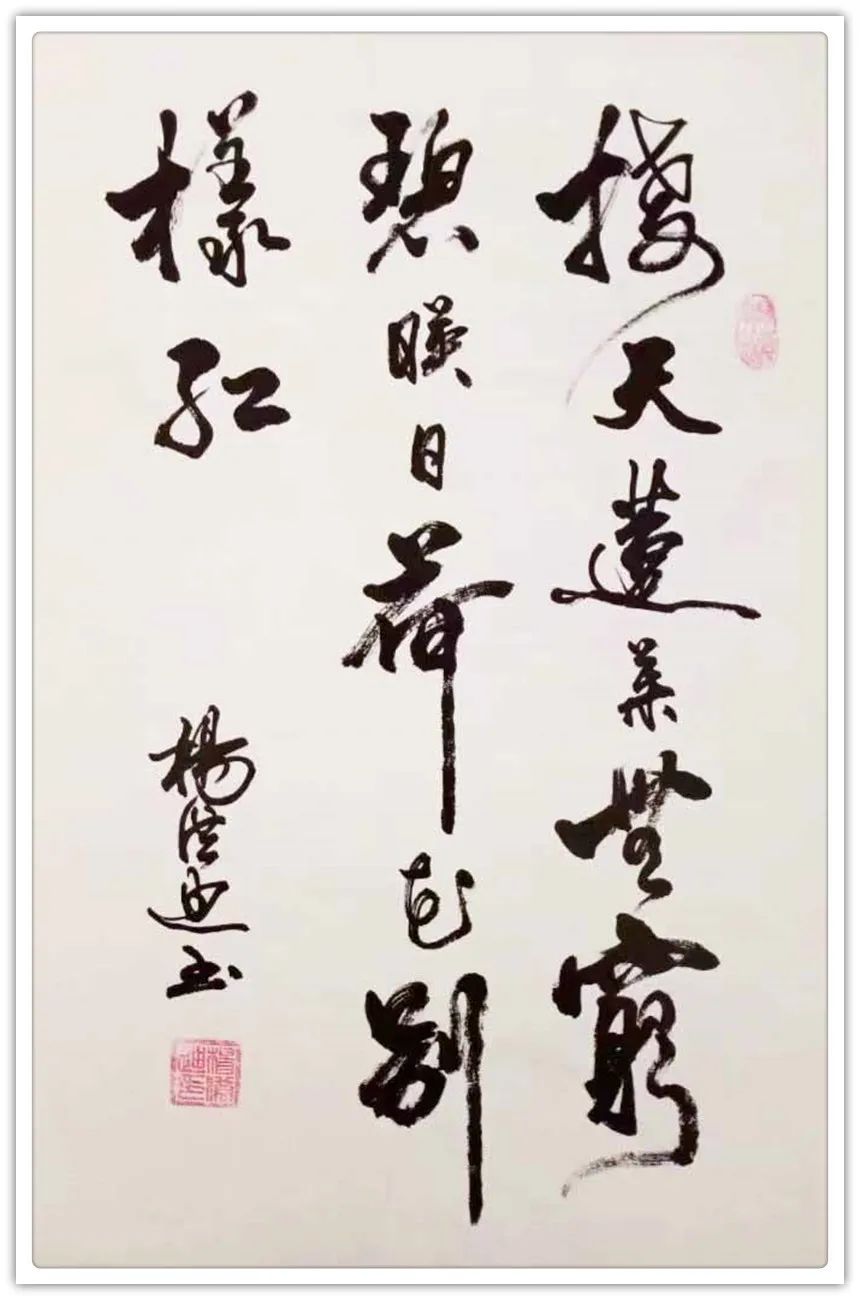 接天蓮葉無窮
碧暎日荷花別
樣紅
楊迪书